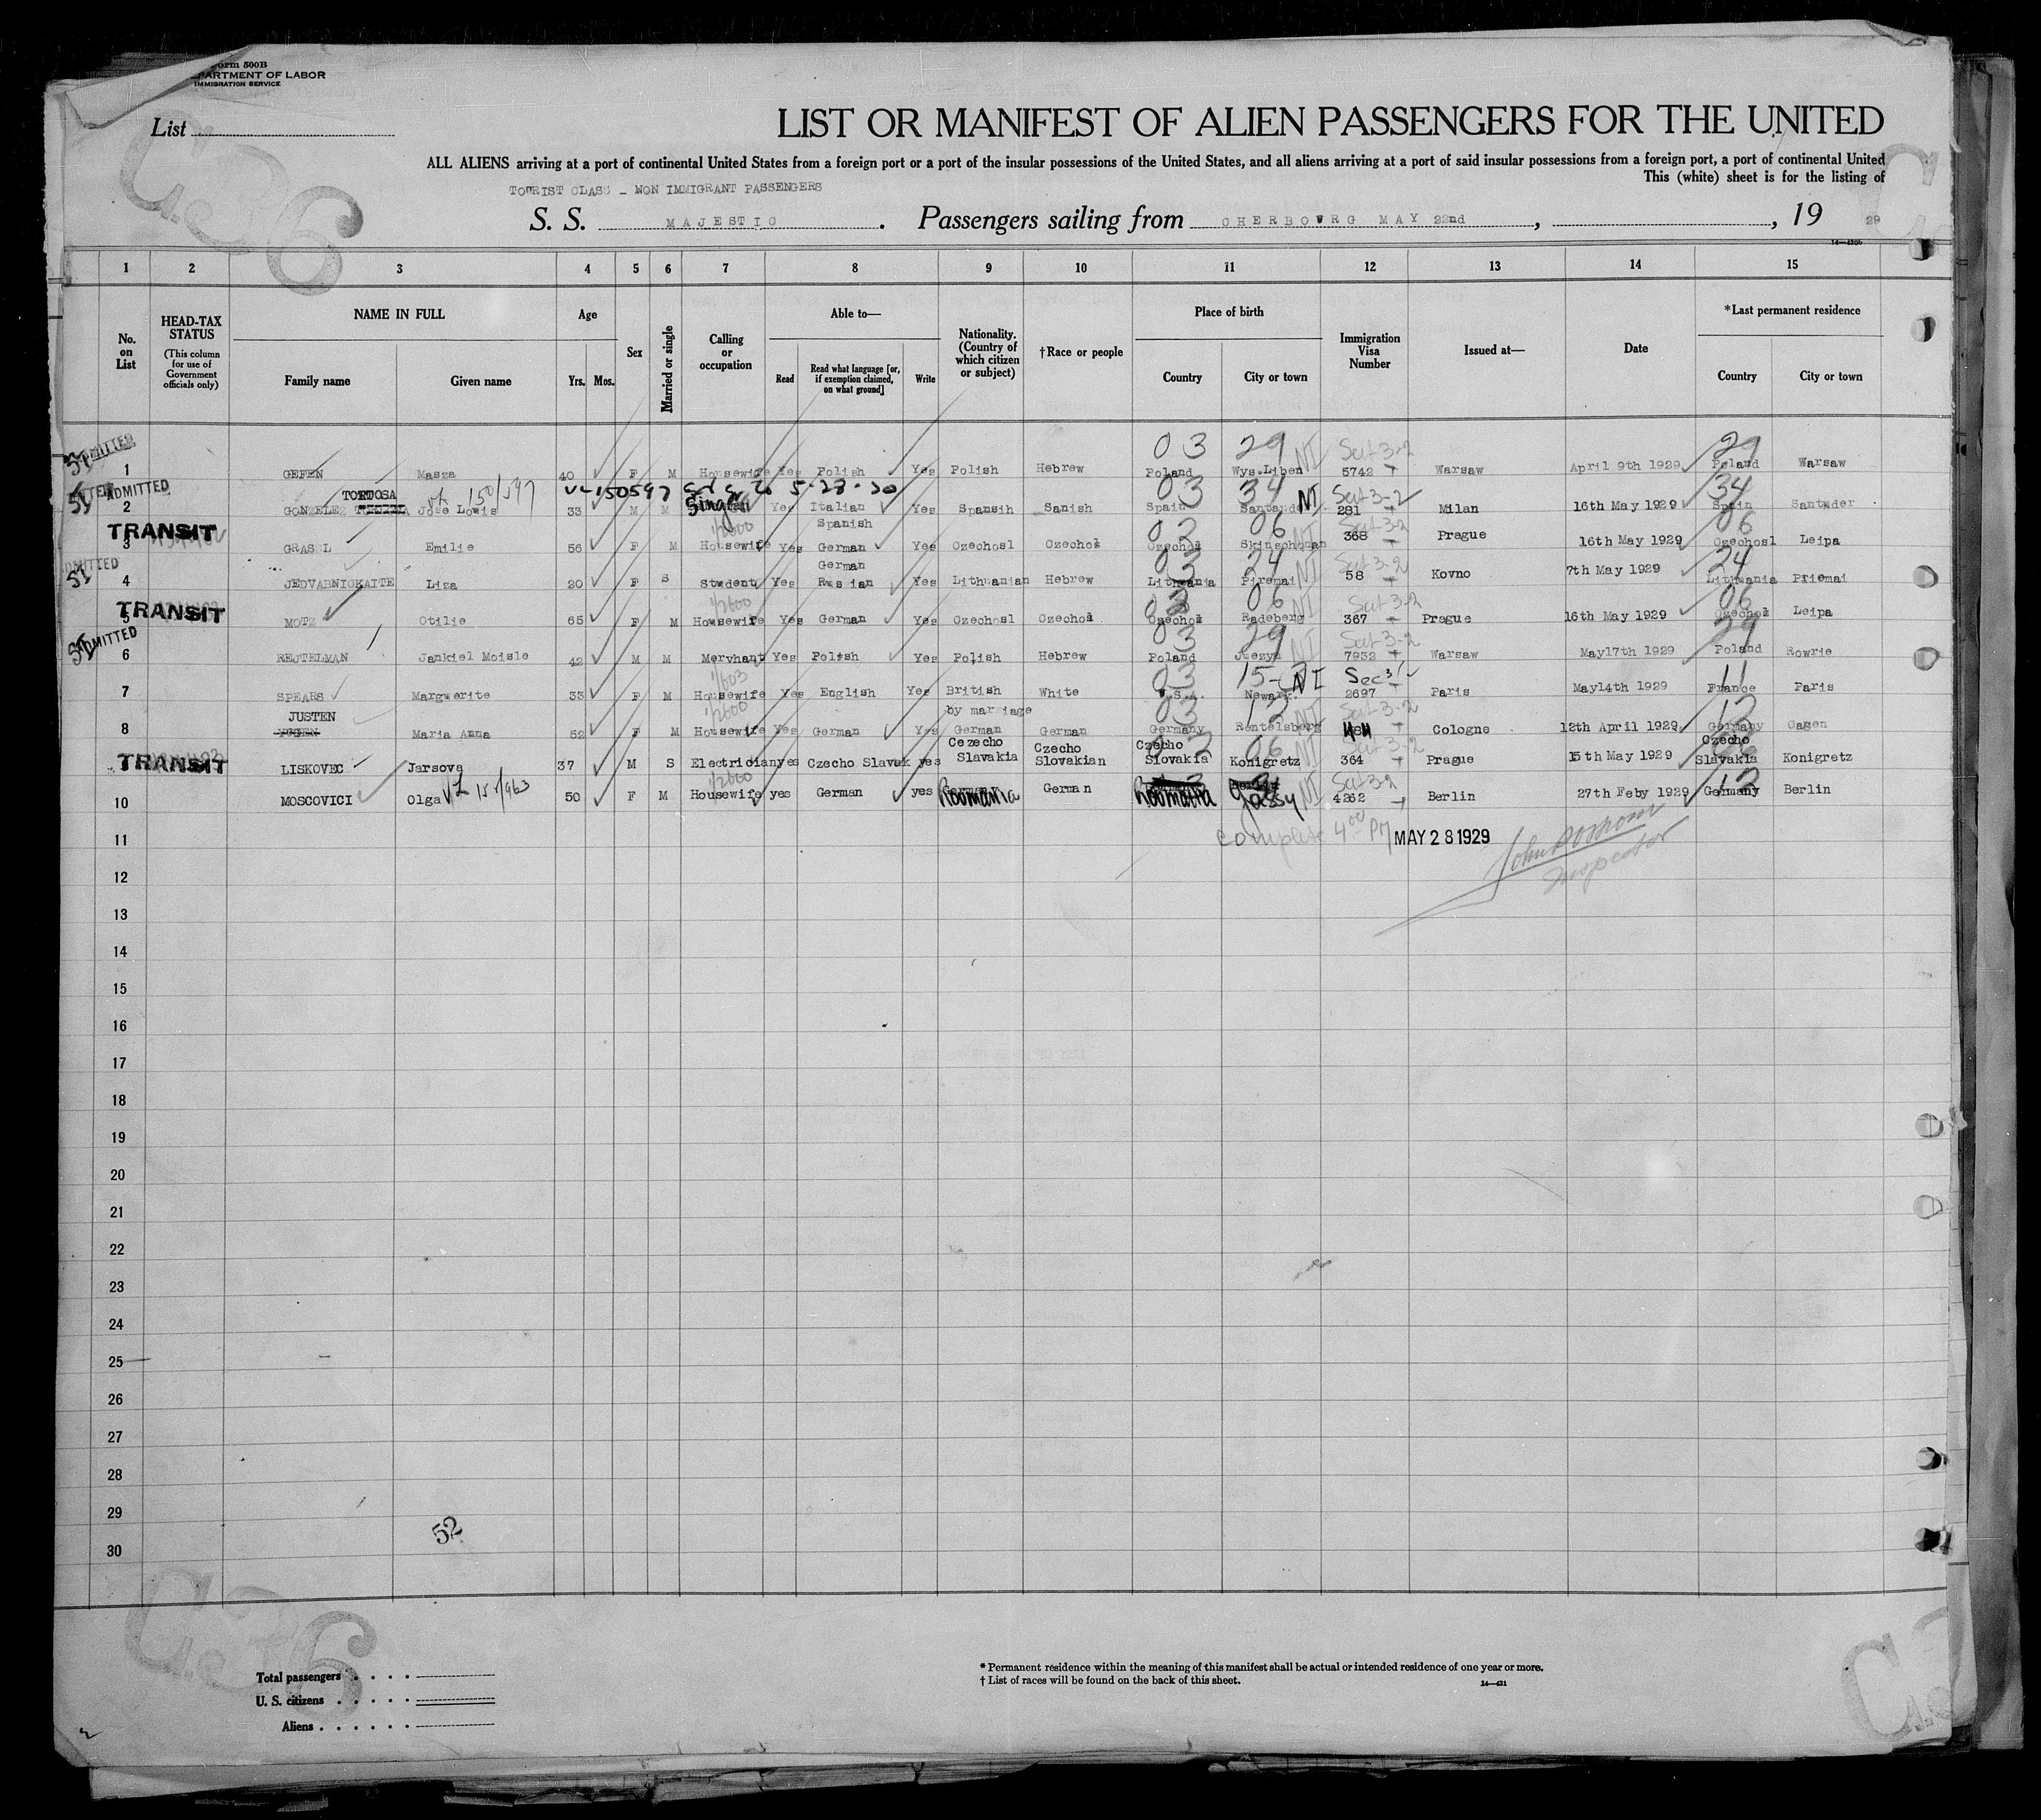 Form 500B
DEPARTMENT OF LABOR
IMMIGRATION SERVICE
List
LIST OR MANIFEST OF ALIEN PASSENGERS FOR THE UNITED
ALL ALIENS arriving at a port of continental United States from a foreign port or a port of the insular possessions of the United States, and all aliens arriving at a port of said insular possessions from a foreign port, a port of continental United
This (white) sheet is for the listing of
TOURIST CLASS - NON IMMIGRANT PASSENGERS
S. S. MAJESTIC. Passengers sailing from CHERBOURG MAY 22nd, , 19 29
1 2 3 4 5 6 7 8 9 10 11 12 13 14 15
No. on List
HEAD-TAX STATUS (This column for use of Government officials only)
NAME IN FULL
Family name Given name
Age
Yrs. Mos.
Sex
Married or single
Calling or occupation
Able to—
Read Read what language [or, if exemption claimed, on what ground] Write
Nationality. (Country of which citizen or subject)
†Race or people
Place of birth
Country City or town
Immigration Visa Number
Issued at—
Date
*Last permanent residence
Country City or town
ADMITTED 03 29 NI Sect 3-2 29
1 GEFEN Masza 40 F M Housewife Yes Polish Yes Polish Hebrew Poland Wys.Liben 5742 Warsaw April 9th 1929 Poland Warsaw
ADMITTED TORTOSA 150/597 150597 5-28-30 03 34 NI Sect 3-2 34
2 GONZELEZ Jose Louis 33 M M Single Yes Italian Spanish Yes Spansih Sanish Spain Santand 281 Milan 16th May 1929 Spain Santnder
TRANSIT 1/2600 02 06 NI Sect 3-2 06
3 GRASSL Emilie 56 F M Housewife Yes German Yes Czechosl Czechol Czechol 368 Prague 16th May 1929 Czechosl Leipa
ADMITTED 03 24 NI Sect 3-2 24
4 JEDVABNICKAITE Liza 20 F S Student Yes German Russian Yes Lithuanian Hebrew Lithuania Piremai 58 Kovno 7th May 1929 Lithuania Priemai
TRANSIT 1/2600 02 06 NI Sect 3-2 06
5 MOTZ Otilie 65 F M Housewife Yes German Yes Czechosl Czechol Czechol Radeberg 367 Prague 16th May 1929 Czechol Leipa
ADMITTED 03 29 NI Sect 3-2 29
6 REJTELMAN Jankiel Moisle 42 M M Mervhant Yes Polish Yes Polish Hebrew Poland Juezyn 7932 Warsaw May17th 1929 Poland Rowrie
1/603 03 15- NI Sec 3 11
7 SPEARS Margwerite 33 F M Housewife Yes English Yes British by marriage White U.S.A. Newark 2697 Paris May14th 1929 France Paris
JUSTEN 1/2600 03 12 NI Sect 3-2 12
8 Maria Anna 52 F M Housewife Yes German Yes German German Germany Rentelsberg Cologne 12th April 1929 Germany Oagen
TRANSIT 02 06 NI Sect 3-2 06
LISKOVEC Jarsova 37 M S Electrician yes Czecho Slavak yes Cezecho Slavakia Czecho Slovakian Czecho Slovakia Konigretz 364 Prague 15th May 1929 Czecho Slavakia Konigretz
1/2600 NI Sect 3-2 12
10 MOSCOVICI Olga 50 F M Housewife yes German yes Roomania German Roomania Jassy 4262 Berlin 27th Feby 1929 Germany Berlin
11 complete 4:00 PM MAY 28 1929
Inspector
12
13
14
15
16
17
18
19
20
21
22
23
24
25
26
27
28
29
52
30
Total passengers
U. S. citizens
Aliens
* Permanent residence within the meaning of this manifest shall be actual or intended residence of one year or more.
† List of races will be found on the back of this sheet.
14—431